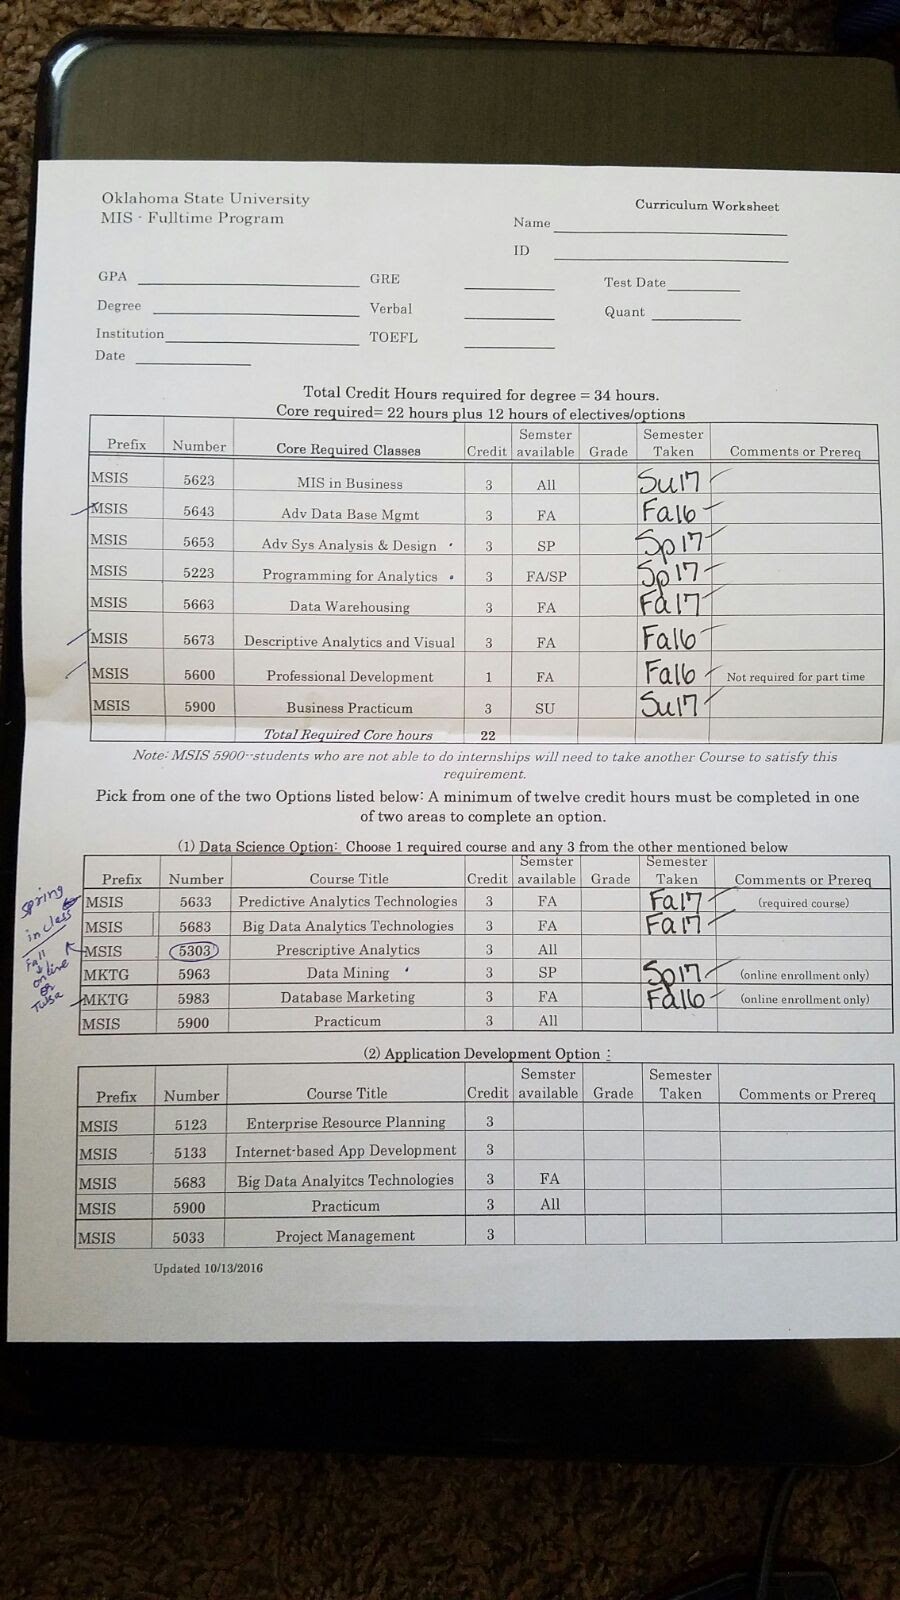 Oklahoma State University
MIS - Fulltime Program
Curriculum Worksheet
Name
ID
GPA GRE Test Date
Degree Verbal Quant
Institution TOEFL
Date
Total Credit Hours required for degree = 34 hours.
Core required= 22 hours plus 12 hours of electives/options
Prefix Number Core Required Classes Credit Semster available Grade Semester Taken Comments or Prereq
MSIS 5623 MIS in Business 3 All Su17
MSIS 5643 Adv Data Base Mgmt 3 FA Fa16
MSIS 5653 Adv Sys Analysis & Design 3 SP Sp17
MSIS 5223 Programming for Analytics 3 FA/SP Sp17
MSIS 5663 Data Warehousing 3 FA Fa17
MSIS 5673 Descriptive Analytics and Visual 3 FA Fa16
MSIS 5600 Professional Development 1 FA Fa16 Not required for part time
MSIS 5900 Business Practicum 3 SU Su17
Total Required Core hours 22
Note: MSIS 5900--students who are not able to do internships will need to take another Course to satisfy this
requirement.
Pick from one of the two Options listed below: A minimum of twelve credit hours must be completed in one
of two areas to complete an option.
(1) Data Science Option: Choose 1 required course and any 3 from the other mentioned below
Prefix Number Course Title Credit Semster available Grade Semester Taken Comments or Prereq
MSIS 5633 Predictive Analytics Technologies 3 FA Fa17 (required course)
MSIS 5683 Big Data Analytics Technologies 3 FA Fa17
MSIS 5303 Prescriptive Analytics 3 All
MKTG 5963 Data Mining 3 SP Sp17 (online enrollment only)
MKTG 5983 Database Marketing 3 FA Fa16 (online enrollment only)
MSIS 5900 Practicum 3 All
Spring
in class
Fall
online
or
Tulsa
(2) Application Development Option :
Prefix Number Course Title Credit Semster available Grade Semester Taken Comments or Prereq
MSIS 5123 Enterprise Resource Planning 3
MSIS 5133 Internet-based App Development 3
MSIS 5683 Big Data Analyitcs Technologies 3 FA
MSIS 5900 Practicum 3 All
MSIS 5033 Project Management 3
Updated 10/13/2016